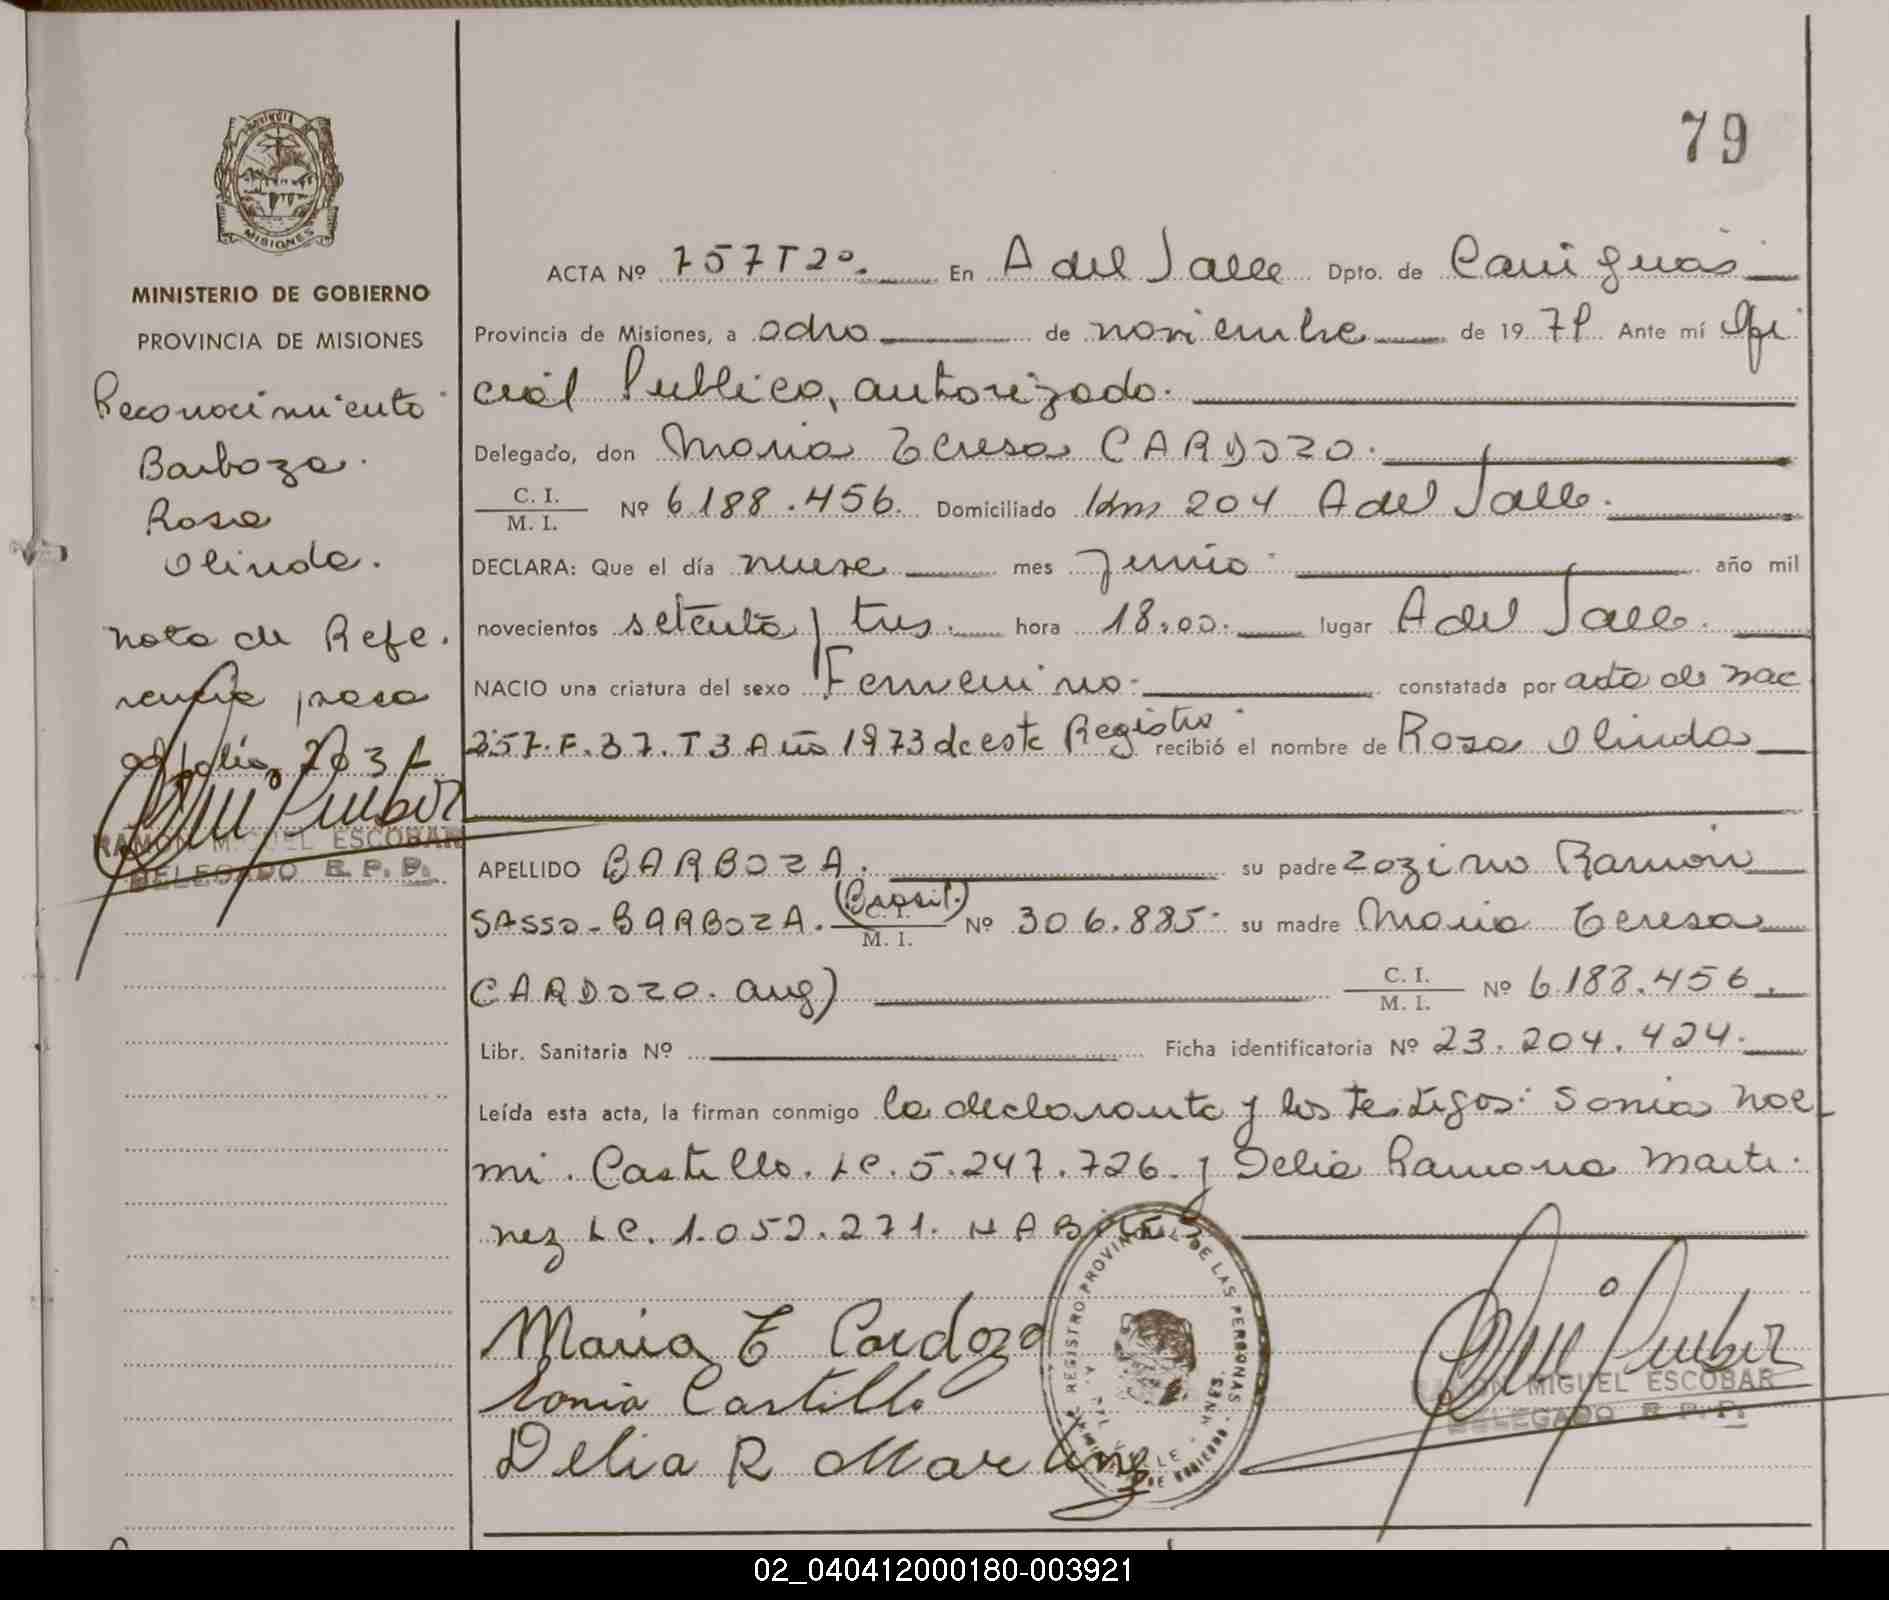 79
PROVINCIA
MISIONES
MINISTERIO DE GOBIERNO
PROVINCIA DE MISIONES
Reconocimiento
Barboza
Rosa
Olinda.
nota de Refe.
rencia pasa
al folio
RAMON MIGUEL ESCOBAR
DELEGADO R. P. P.
ACTA Nº 757 T 2º. En A del Valle Dpto. de Cainguás
Provincia de Misiones, a ocho de noviembre de 19 Ante mí Ofi
cial Publico, autorizado.
Delegado, don Maria Teresa CARDOZO.
C. I.
M. I. Nº 6.188.456. Domiciliado Km 204 A del Valle.
DECLARA: Que el día nueve mes Junio año mil
novecientos setenta y tres. hora 18.00. lugar A del Valle.
NACIO una criatura del sexo Femenino. constatada por acta de nac
357. F. 37. T 3 Año 1973 de este Registro recibió el nombre de Rosa Olinda
APELLIDO BARBOZA. su padre Zozimo Ramón
SASSO-BARBOZA. (Brasil.) C. I.
M. I. Nº 306.885. su madre Maria Teresa
CARDOZO. arg) C. I.
M. I. Nº 6.188.456.
Libr. Sanitaria Nº Ficha identificatoria Nº 23.204.424.
Leída esta acta, la firman conmigo la declarante y los testigos: Sonia Noe
mi. Castillo. LC. 5.247.726. y Delia Ramona Marti.
nez LC. 1.052.271. HABILES
Maria T Cardozo
Sonia Castillo
Delia R Martinez
REGISTRO PROVINCIAL DE LAS PERSONAS
RAMON MIGUEL ESCOBAR
DELEGADO R. P. P.
02_040412000180-003921